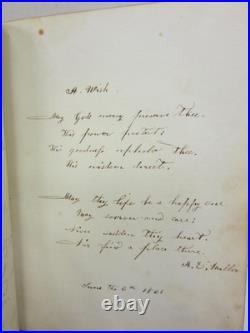 A. Wish
May Gods mercy preserve thee.
His power protect:
His goodness uphold thee.
His wisdom direct.
May thy life be a happy one
Very sorrow and care:
Never within thy heart.
No find a place there.
A. E. Miller
June the 6th 1861